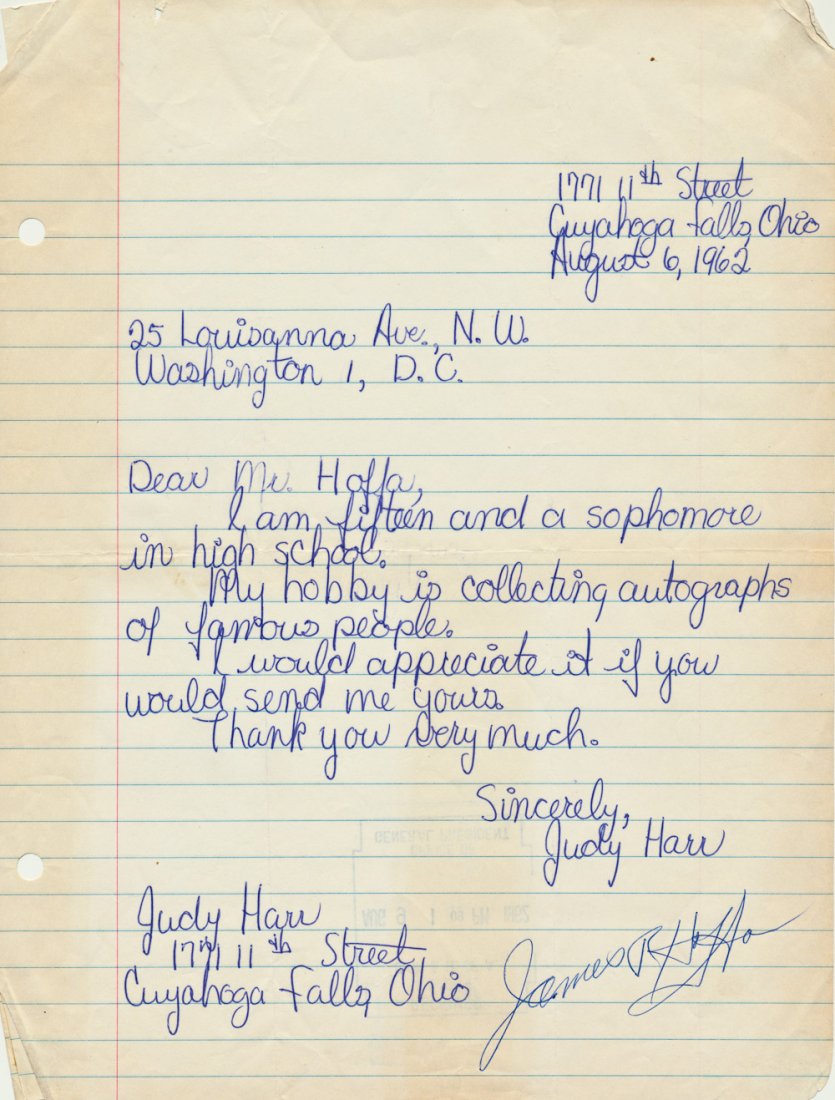 1771 11th Street
Cuyahoga Falls, Ohio
August 6, 1962
25 Louisanna Ave., N.W.
Washington 1, D.C.
Dear Mr. Hoffa,
I am fifteen and a sophomore
in high school.
My hobby is collecting autographs
of famous people.
I would appreciate it if you
would send me yours.
Thank you very much.
Sincerely,
Judy Harr
GENERAL PRESIDENT
AUG 9 1 PM 1962
Judy Harr
1771 11th Street
Cuyahoga Falls, Ohio
James R Hoffa